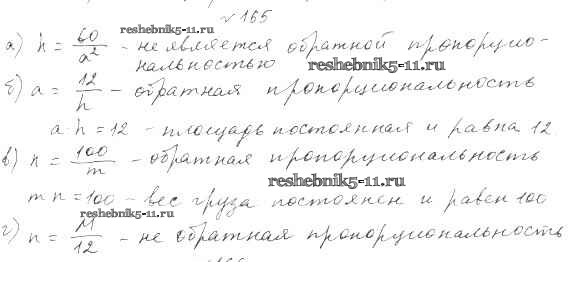 √165
reshebnik5-11.ru
а) h = 60/a² - не является обратной пропорцио-
нальностью reshebnik5-11.ru
б) a = 12/h - обратная пропорциональность
a·h = 12 - площадь постоянная и равна 12
в) n = 100/m - обратная пропорциональность
reshebnik5-11.ru
mn = 100 - вес груза постоянен и равен 100
reshebnik5-11.ru
г) n = M/12 - не обратная пропорциональность